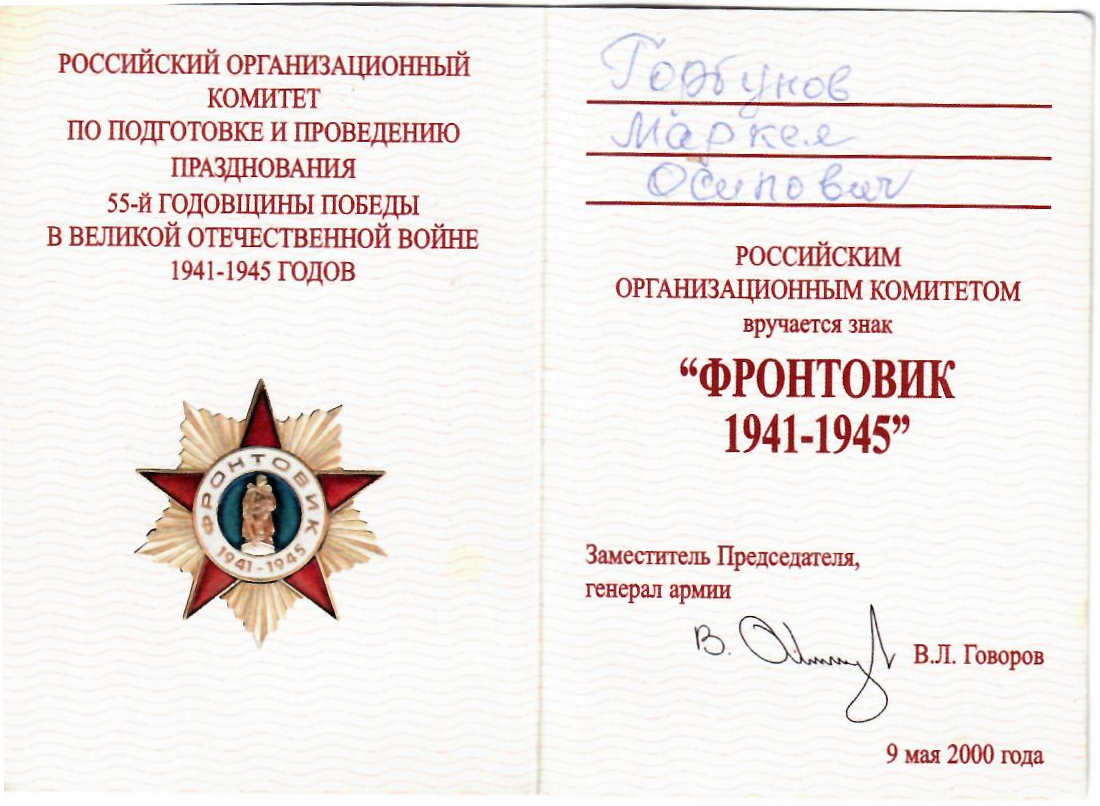 РОССИЙСКИЙ ОРГАНИЗАЦИОННЫЙ
КОМИТЕТ
ПО ПОДГОТОВКЕ И ПРОВЕДЕНИЮ
ПРАЗДНОВАНИЯ
55-й ГОДОВЩИНЫ ПОБЕДЫ
В ВЕЛИКОЙ ОТЕЧЕСТВЕННОЙ ВОЙНЕ
1941-1945 ГОДОВ
ФРОНТОВИК
1941-1945
Горбунов
Маркел
Осипович
РОССИЙСКИМ
ОРГАНИЗАЦИОННЫМ КОМИТЕТОМ
вручается знак
“ФРОНТОВИК
1941-1945”
Заместитель Председателя,
генерал армии
В.Л. Говоров
9 мая 2000 года